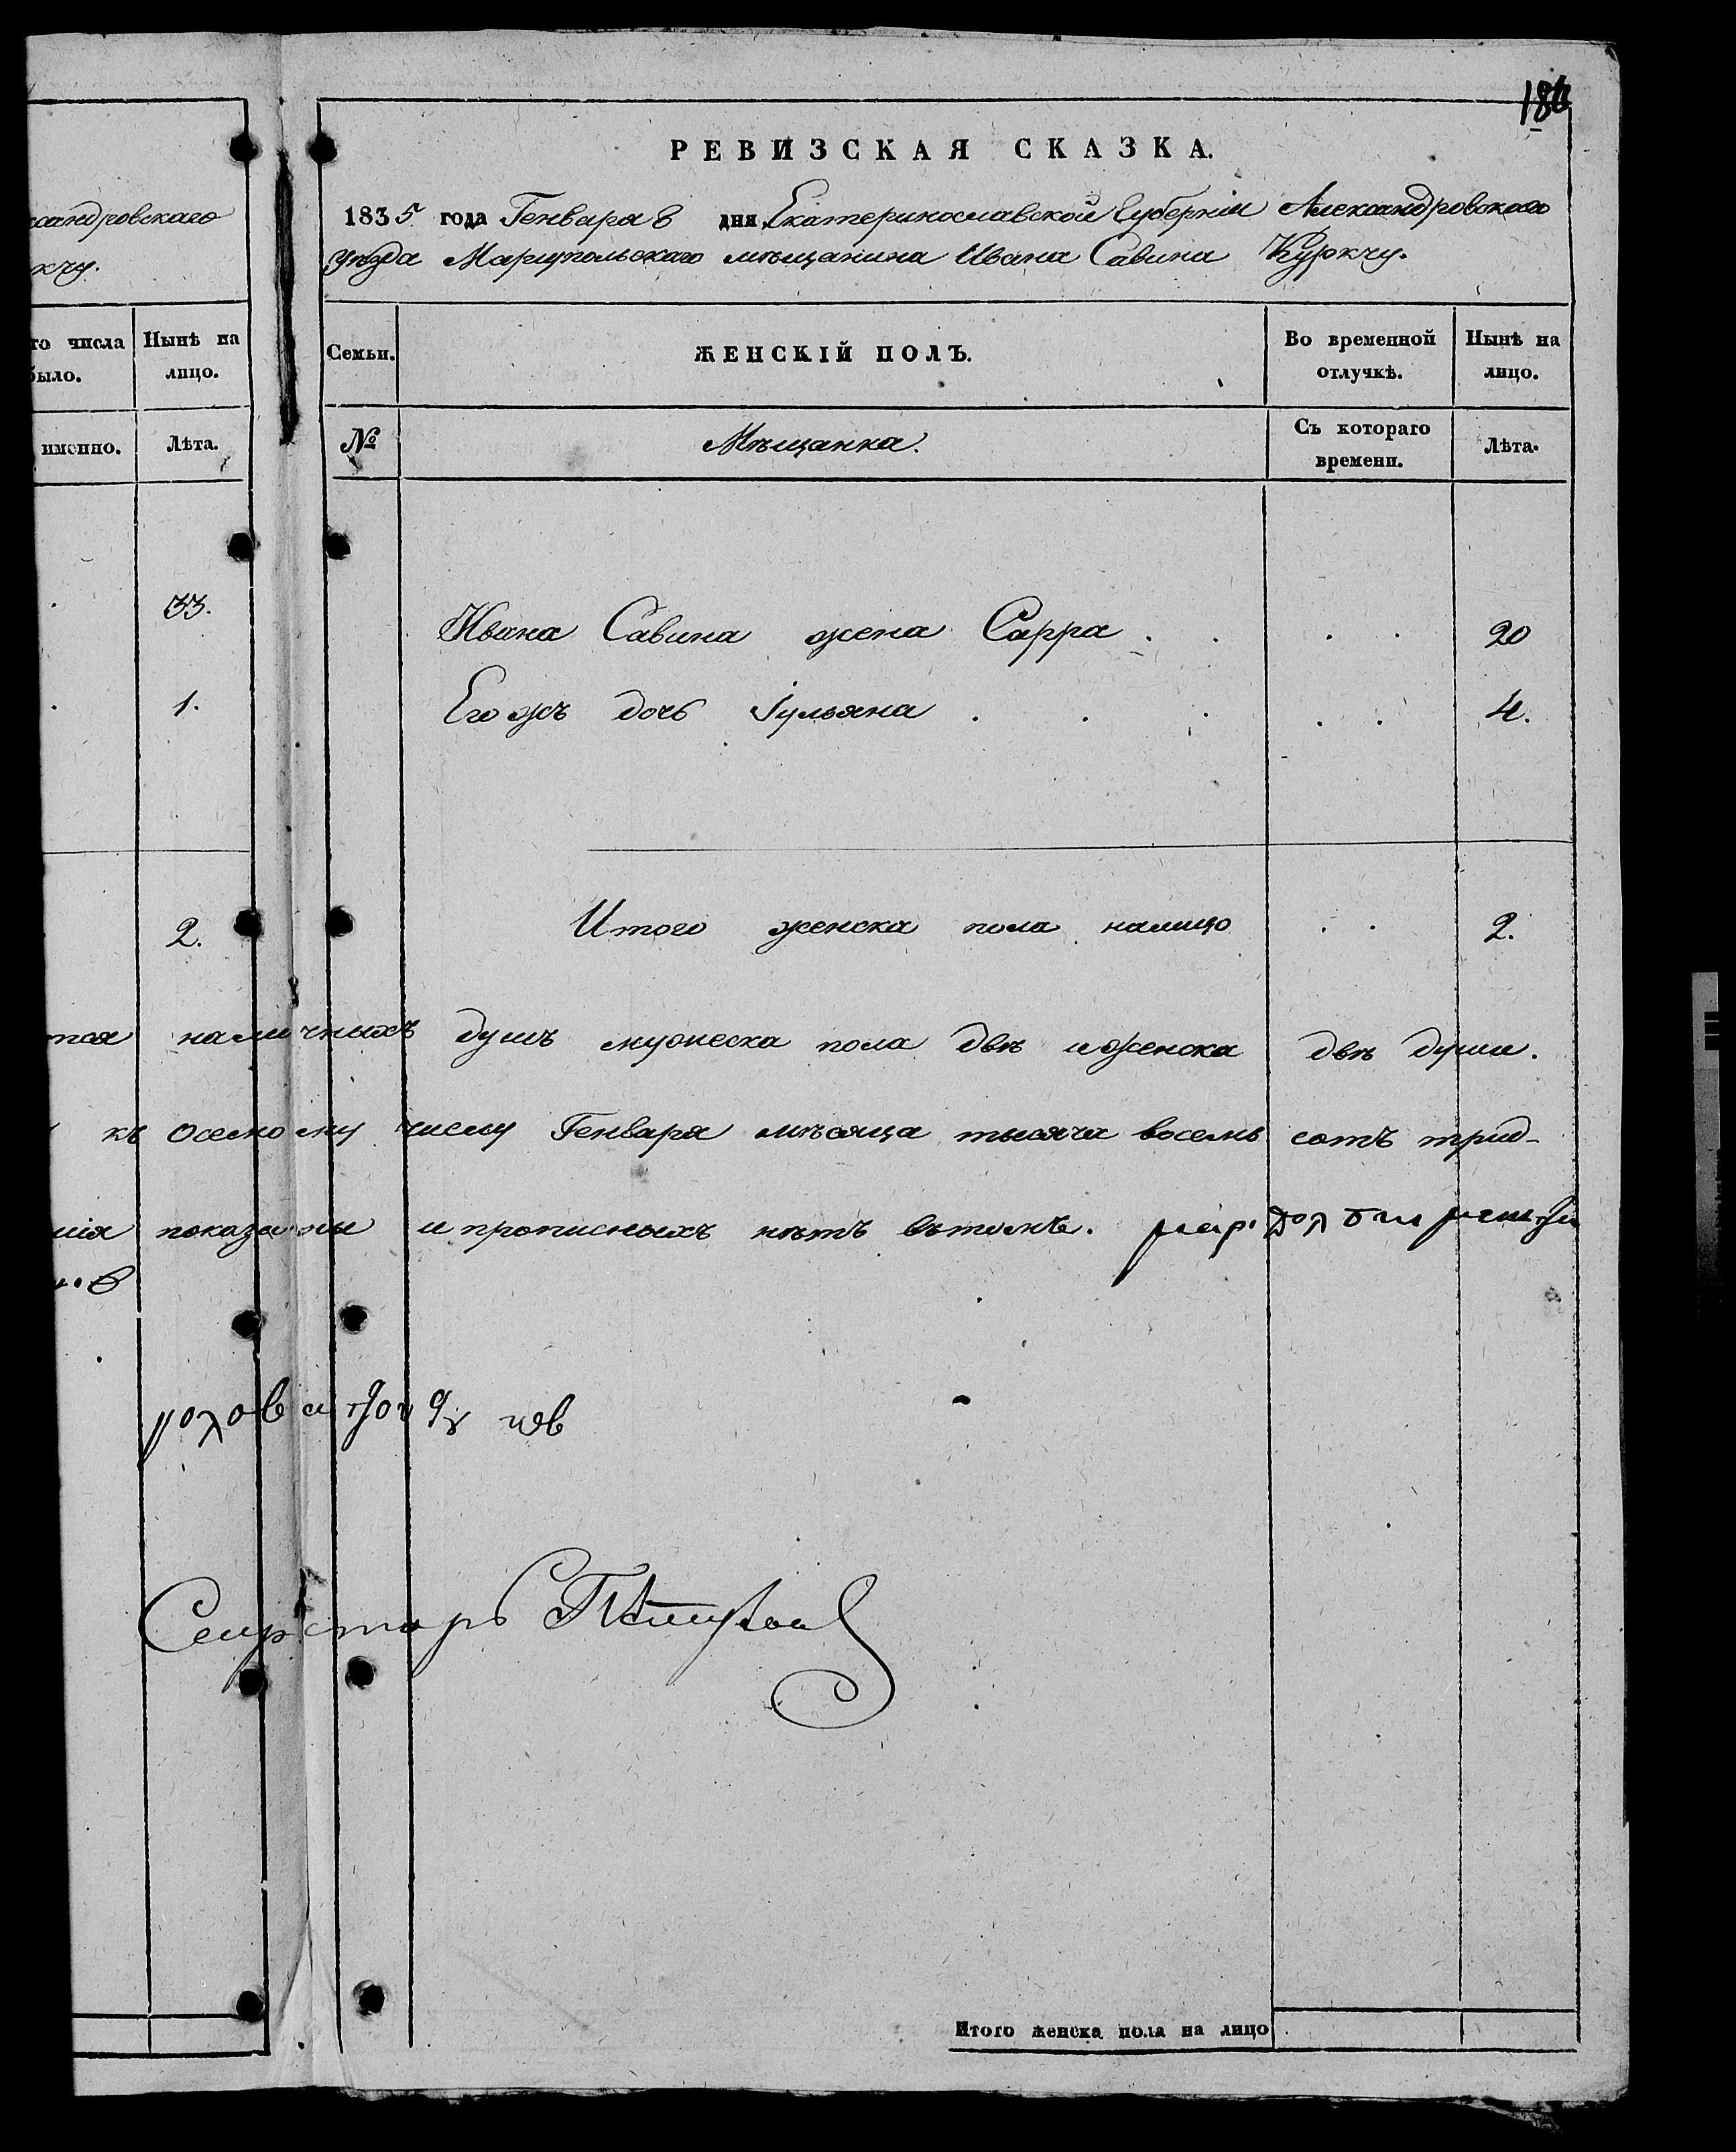 186
РЕВИЗСКАЯ СКАЗКА.
1835 года Генваря 8 дня Екатеринославской Губерніи Александровскаго
уѣзда Маріупольскаго мѣщанина Ивана Савина Куркчу.
ксандровскаго
кчу.
го числа
было.
Нынѣ на
лицо.
Семьи.
ЖЕНСКІЙ ПОЛЪ.
Во временной
отлучкѣ.
Нынѣ на
лицо.
именно.
Лѣта.
№
Мѣщанка.
Съ котораго
времени.
Лѣта.
33.
Ивана Савина жена Сарра . . . . 20
1.
Его жъ дочь Іульяна . . . . . 4.
2.
Итого женска пола налицо . . 2.
тся наличныхъ душъ мужеска пола двѣ и женска двѣ души.
къ осемому числу Генваря месяца тысяча восемь сотъ трид-
нія показаны и прописныхъ нѣтъ вътомъ.
Секретарь
Итого женска пола на лицо